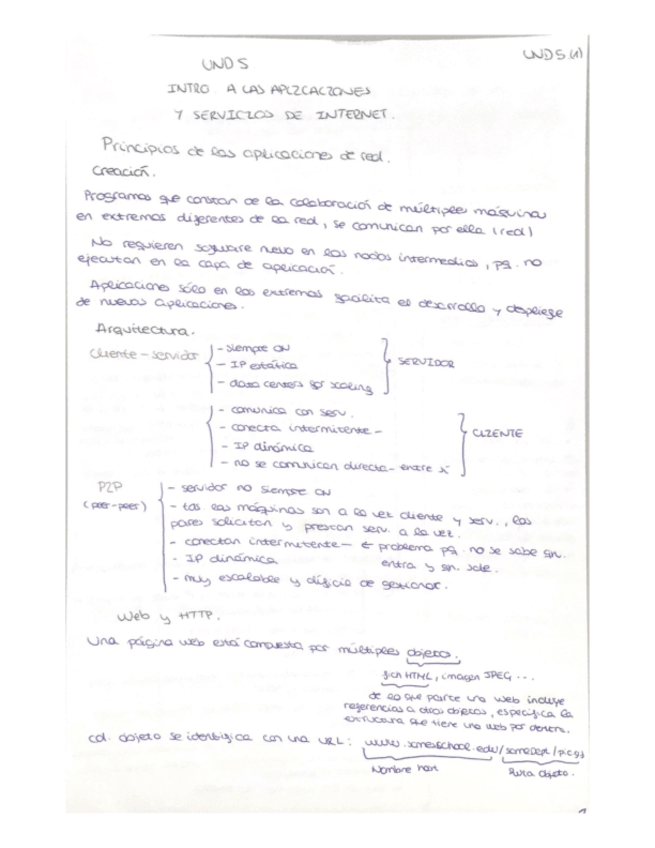 UND 5 (1)
UND 5
INTRO A LAS APLICACIONES
Y SERVICIOS DE INTERNET.
Principios de las aplicaciones de red.
Creación.
Programas que constan de la colaboración de múltiples máquinas
en extremos diferentes de la red, se comunican por ella (red)
No requieren software nuevo en los nodos intermedios, pq. no
ejecutan en la capa de aplicación.
Aplicaciones sólo en los extremos facilita el desarrollo y despliege
de nuevas aplicaciones.
Arquitectura.
Cliente-servidor
- siempre ON
- IP estática
- data centers for scaling
SERVIDOR
- comunica con serv.
- conecta intermitente-
- IP dinámica
- no se comunican directa- entre sí
CLIENTE
P2P
(peer-peer)
- servidor no siempre ON
- tas las máquinas son a la vez cliente y serv., los
pares solicitan y prestan serv. a la vez.
- conectan intermitente- ← problema pq. no se sabe qn.
entra y qn. sale.
- IP dinámica
- muy escalable y difícil de gestionar.
Web y HTTP.
Una página web está compuesta por múltiples objetos.
fch HTML, imagen JPEG ...
de lo que parte una web incluye
referencias a otros objetos, especifica la
estructura que tiene una web por dentro.
cd. objeto se identifica con una URL: www.someschool.edu/someDept/pic.gif
Nombre host
Ruta objeto.